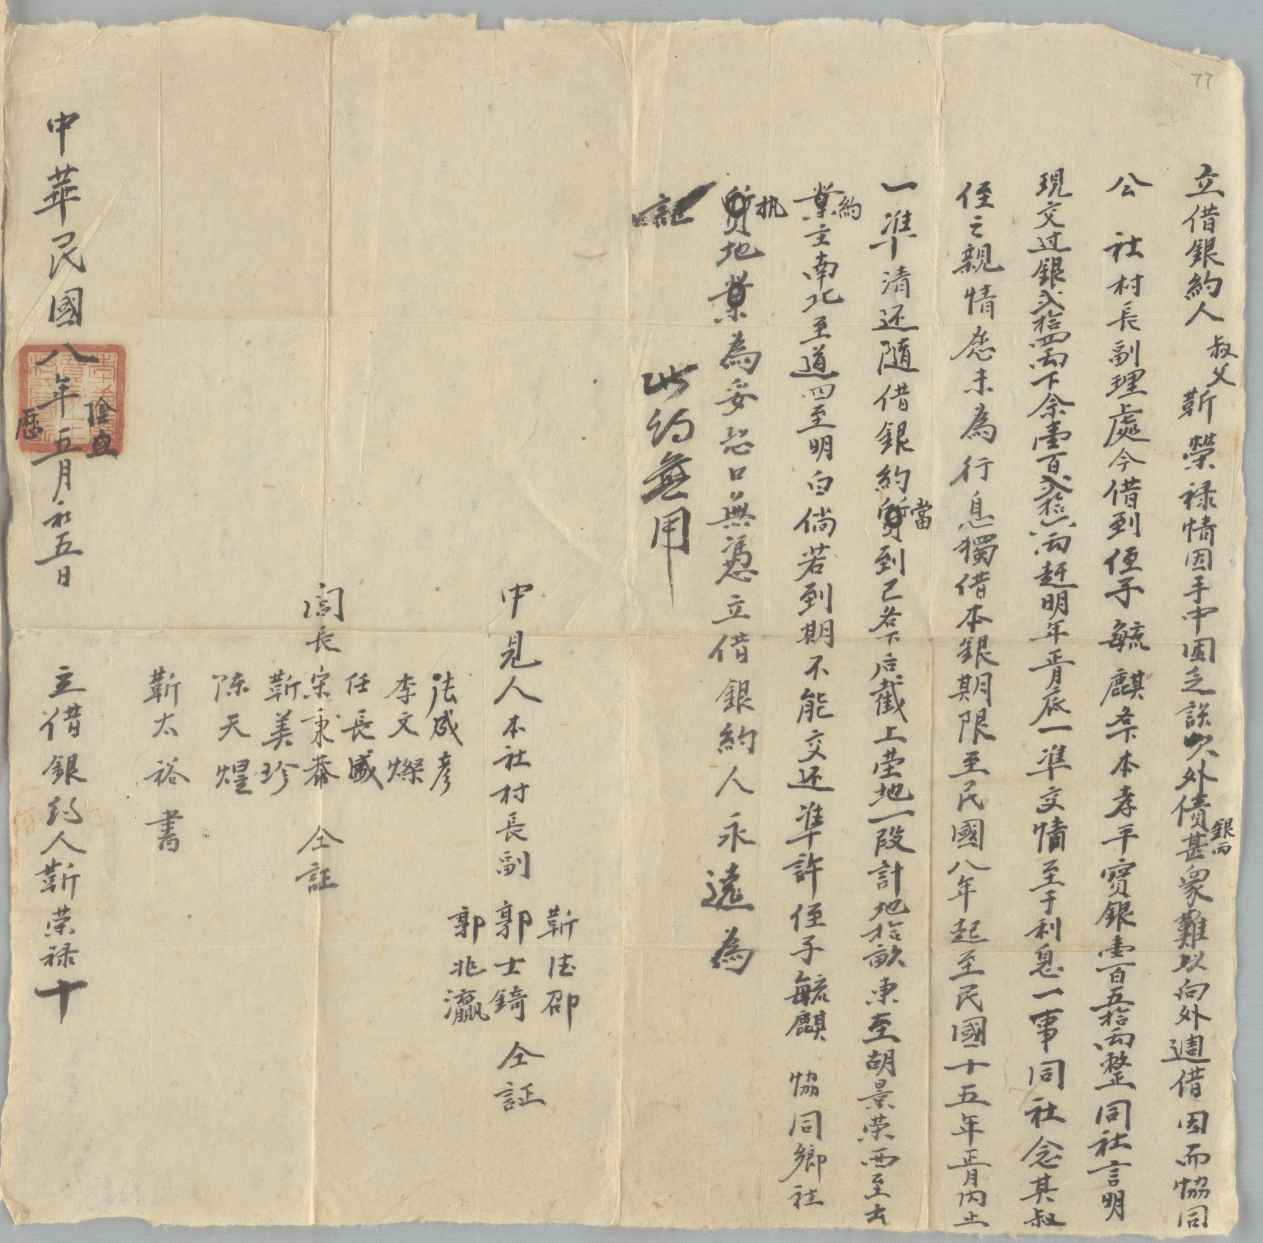 77
立借銀約人叔父靳榮祿情因手中困乏誤欠外債銀両甚衆難以向外週借因而恊同
公社村長副理處今借到侄子毓麒名下本孝平寳銀壹百五拾両整同社言明
現交过銀弍拾四両下余壹百弍拾六両赶明年正月底一準交情至于利息一事同社念其叔
侄之親情愿未為行息獨借本銀期限至民國八年起至民國十五年正月內止
一準清还隨借銀約當到已名下后截上塋地一段計地拾畝東至胡景荣西至去
約業主南北至道四至明白倘若到期不能交还準許侄子毓麒恊同鄉社
执地業為妥恐口無憑立借銀約人永遠為
証
此約無用
中見人本社村長副
靳法邵
郭士錡
郭兆瀛
仝証
張成彥
李文燦
任長盛
閭長宋秉泰
靳美珍
陈天煌
仝証
靳太裕書
中華民國八年五月初五日
陰曆
立借銀约人靳荣禄十